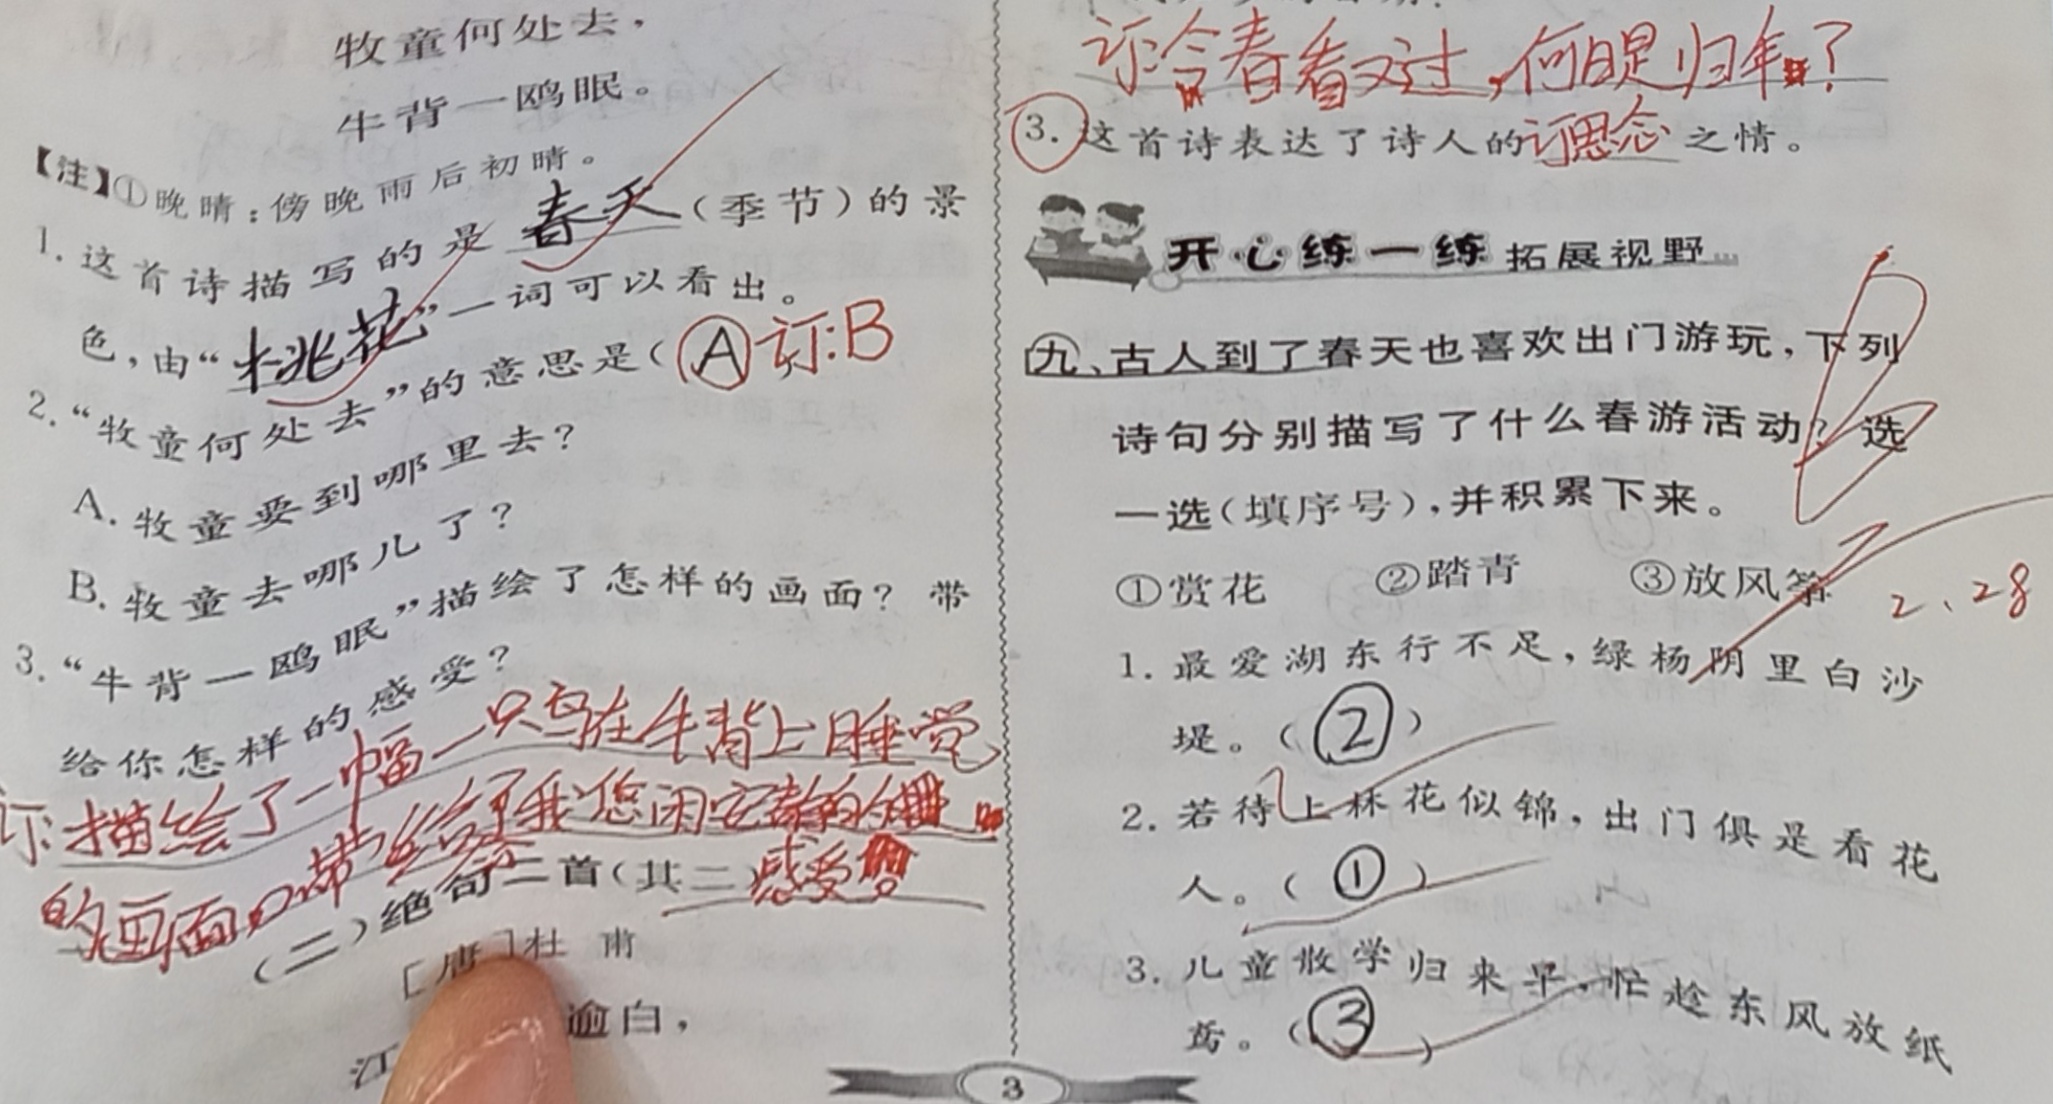 牧童何处去，
牛背一鸥眠。
【注】①晚晴：傍晚雨后初晴。
1. 这首诗描写的是 春天 （季节）的景
色，由“桃花”一词可以看出。
2. “牧童何处去”的意思是（ A 订：B
A. 牧童要到哪里去？
B. 牧童去哪儿了？
3. “牛背一鸥眠”描绘了怎样的画面？带
给你怎样的感受？
订：描绘了一幅一只鸟在牛背上睡觉
的画面。带给了我悠闲安静的
感受
（二）绝句二首（其二）
［唐］杜甫
江 逾白，
订：今春看又过，何日是归年？
3. 这首诗表达了诗人的订思念之情。
开心练一练 拓展视野
九、古人到了春天也喜欢出门游玩，下列
诗句分别描写了什么春游活动？选
一选（填序号），并积累下来。
①赏花 ②踏青 ③放风筝
2、28
1. 最爱湖东行不足，绿杨阴里白沙
堤。（ ② ）
2. 若待上林花似锦，出门俱是看花
人。（ ① ）
3. 儿童散学归来早，忙趁东风放纸
鸢。（ ③ ）
3